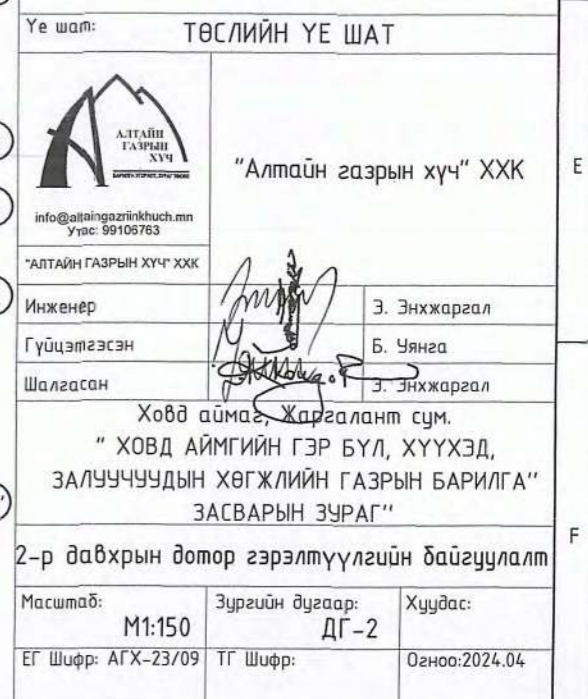 Үе шат: ТӨСЛИЙН ҮЕ ШАТ
АЛТАЙН
ГАЗРЫН
ХҮЧ
info@altaingazriinkhuch.mn
Утас: 99106763
"Алтайн газрын хүч" ХХК
"АЛТАЙН ГАЗРЫН ХҮЧ" ХХК
Инженер Э. Энхжаргал
Гүйцэтгэсэн Б. Уянга
Шалгасан Э. Энхжаргал
Ховд аймаг, Жаргалант сум.
" ХОВД АЙМГИЙН ГЭР БҮЛ, ХҮҮХЭД,
ЗАЛУУЧУУДЫН ХӨГЖЛИЙН ГАЗРЫН БАРИЛГА"
ЗАСВАРЫН ЗУРАГ"
2-р давхрын дотор гэрэлтүүлгийн байгуулалт
Масштаб: Зургийн дугаар: Хуудас:
М1:150 ДГ-2
ЕГ Шифр: АГХ-23/09 ТГ Шифр: Огноо:2024.04
E
F